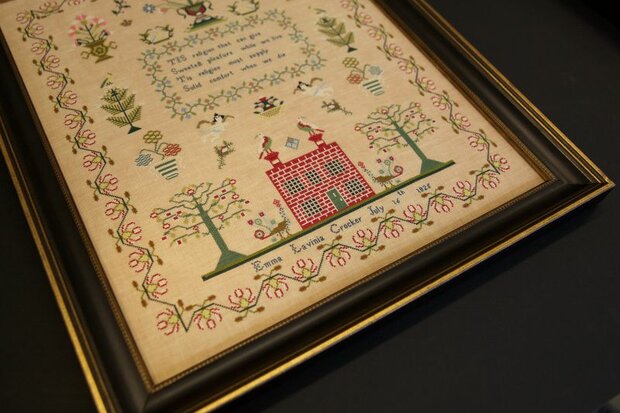 TIS religion that can give
Sweetest pleasure while we live
Tis religion must supply
Solid comfort when we die
Emma Lavinia Crocker July 16th 1825